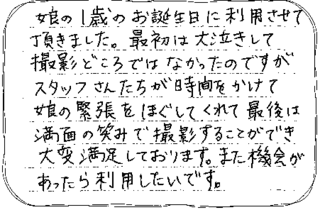 娘の1歳のお誕生日に利用させて
頂きました。最初は大泣きして
撮影どころではなかったのですが
スタッフさんたちが時間をかけて
娘の緊張をほぐしてくれて最後は
満面の笑みで撮影することができ
大変満足しております。また機会が
あったら利用したいです。